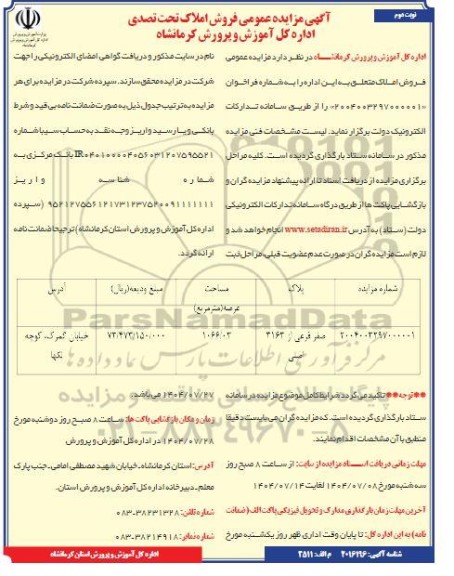 نوبت دوم
آگهی مزایده عمومی فروش املاک تحت تصدی
اداره کل آموزش و پرورش کرمانشاه
اداره کل آموزش و پرورش کرمانشاه در نظر دارد مزایده عمومی
فروش املاک متعلق به این اداره را به شماره فراخوان
«2004003297000001» را از طریق سامانه تدارکات
الکترونیک دولت برگزار نماید. لیست مشخصات فنی مزایده
مذکور در سامانه ستاد بارگذاری گردیده است. کلیه مراحل
برگزاری مزایده از دریافت اسناد تا ارائه پیشنهاد مزایده گران و
بازگشایی پاکت ها از طریق درگاه سامانه تدارکات الکترونیکی
دولت (ستاد) به آدرس www.setadiran.ir انجام خواهد شد و
لازم است مزایده گران در صورت عدم عضویت قبلی، مراحل ثبت
نام در سایت مذکور و دریافت گواهی امضای الکترونیکی را جهت
شرکت در مزایده محقق سازند. سپرده شرکت در مزایده برای هر
مزایده به ترتیب جدول ذیل به صورت ضمانت نامه بی قید و شرط
بانکی و یا رسید واریز وجه نقد به حساب سیبا شماره
بانک مرکزی به
شماره شناسه واریز
(سپرده
اداره کل آموزش و پرورش استان کرمانشاه) ترجیحا ضمانت نامه
ارائه گردد.
شماره مزایده پلاک مساحت عرصه(مترمربع) مبلغ ودیعه(ریال) آدرس
2004003297000001 صفر فرعی از 3163 اصلی 1066/02 73/473/150/000 خیابان گمرک، کوچه
**توجه** تاکید می گردد شرایط کامل موضوع مزایده در سامانه
ستاد بارگذاری گردیده است. که مزایده گران می بایست دقیقا
منطبق با آن مشخصات اقدام نمایند.
مهلت زمانی دریافت اسناد مزایده از سایت: از ساعت 8 صبح روز
سه شنبه مورخ 1404/07/08 لغایت 1404/07/14
آخرین مهلت زمان بارگذاری مدارک و تحویل فیزیکی پاکت الف( ضمانت
نامه) به این اداره کل: تا پایان وقت اداری ظهر روز یکشنبه مورخ
1404/07/27 می باشد.
زمان و مکان بازگشایی پاکت ها: ساعت 8 صبح روز دوشنبه مورخ
1404/07/28 در اداره کل آموزش و پرورش
آدرس: استان کرمانشاه، خیابان شهید مصطفی امامی، جنب پارک
معلم، دبیرخانه اداره کل آموزش و پرورش استان.
شماره تلفن: 38231328-083
شماره نمابر: 38214918-083
شناسه آگهی: 2016196 م الف: 2511
اداره کل آموزش و پرورش استان کرمانشاه
ParsNamadData
مرکز فرآوری اطلاعات پارس نماد داده ها